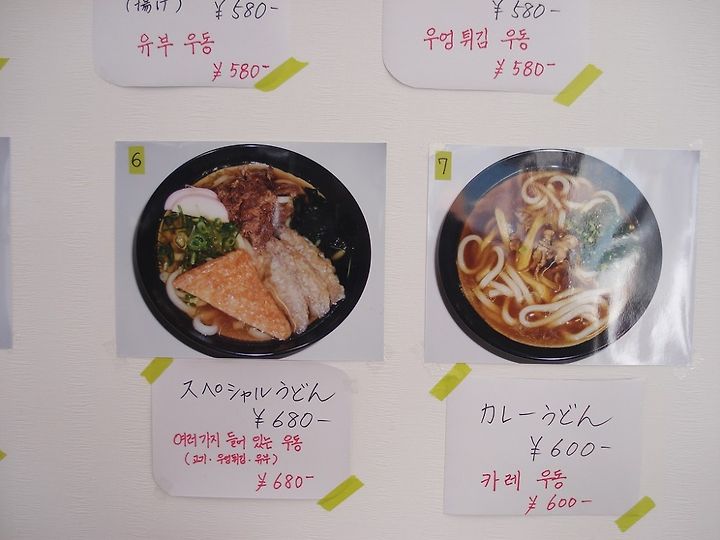 (揚げ) ¥580-
유부 우동
¥580-
¥580-
우엉 튀김 우동
¥580-
6
スペシャルうどん
¥680-
여러가지 들어 있는 우동
(고기·우엉튀김·유부)
¥680-
7
カレーうどん
¥600-
카레 우동
¥600-